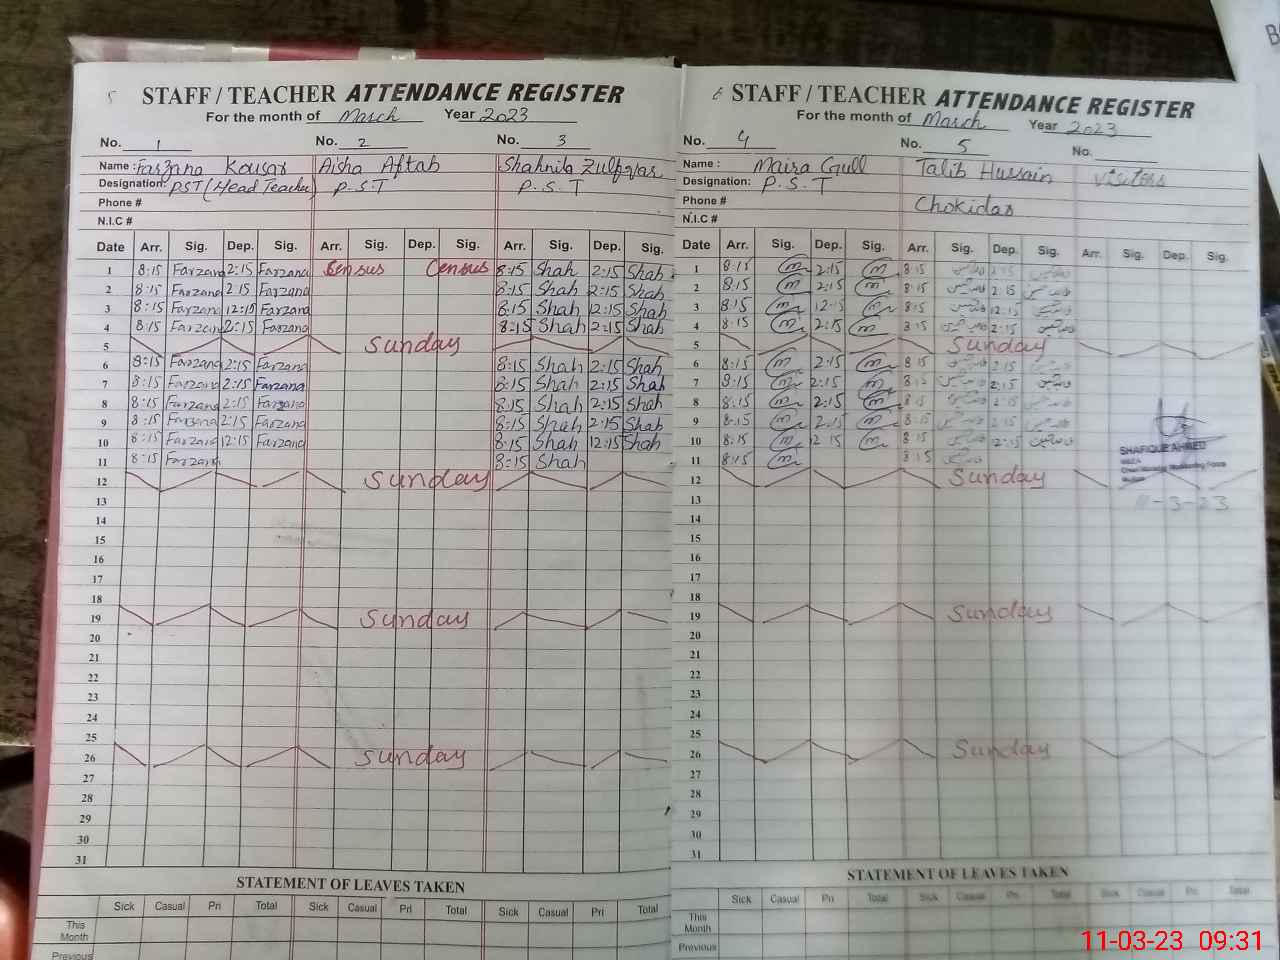 5 STAFF / TEACHER ATTENDANCE REGISTER
For the month of March Year 2023
No. 1 No. 2 No. 3
Name : Farzana Kousar Aisha Aftab Shahnila Zulfqar
Designation: PST (Head Teacher) P.S.T P.S.T
Phone #
N.I.C #
Date Arr. Sig. Dep. Sig. Arr. Sig. Dep. Sig. Arr. Sig. Dep. Sig.
1 8:15 Farzana 2:15 Farzana Census Census 8:15 Shah 2:15 Shah
2 8:15 Farzana 2:15 Farzana 8:15 Shah 2:15 Shah
3 8:15 Farzana 12:15 Farzana 8:15 Shah 12:15 Shah
4 8:15 Farzana 2:15 Farzana 8:15 Shah 2:15 Shah
5 Sunday
6 8:15 Farzana 2:15 Farzana 8:15 Shah 2:15 Shah
7 8:15 Farzana 2:15 Farzana 8:15 Shah 2:15 Shah
8 8:15 Farzana 2:15 Farzana 8:15 Shah 2:15 Shah
9 8:15 Farzana 2:15 Farzana 8:15 Shah 2:15 Shah
10 8:15 Farzana 12:15 Farzana 8:15 Shah 12:15 Shah
11 8:15 Farzana 8:15 Shah
12 Sunday
13
14
15
16
17
18
19 Sunday
20
21
22
23
24
25
26 Sunday
27
28
29
30
31
STATEMENT OF LEAVES TAKEN
Sick Casual Pri Total Sick Casual Pri Total Sick Casual Pri Total
This Month
Previous
6 STAFF / TEACHER ATTENDANCE REGISTER
For the month of March Year 2023
No. 4 No. 5 No.
Name : Maira Gull Talib Hussain Visiters
Designation: P.S.T
Phone # Chokidar
N.I.C #
Date Arr. Sig. Dep. Sig. Arr. Sig. Dep. Sig. Arr. Sig. Dep. Sig.
1 8:15 m 2:15 m 8:15 2:15
2 8:15 m 2:15 m 8:15 2:15
3 8:15 m 12:15 m 8:15 12:15
4 8:15 m 2:15 m 8:15 2:15
5 Sunday
6 8:15 m 2:15 m 8:15 2:15
7 8:15 m 2:15 m 8:15 2:15
8 8:15 m 2:15 m 8:15 2:15
9 8:15 m 2:15 m 8:15 2:15
10 8:15 m 12:15 m 8:15 12:15
11 8:15 m 8:15
SHAFIQUE AHMED
12 Sunday
11-3-23
13
14
15
16
17
18
19 Sunday
20
21
22
23
24
25
26 Sunday
27
28
29
30
31
STATEMENT OF LEAVES TAKEN
Sick Casual Pri Total Sick Casual Pri Total Sick Casual Pri Total
This Month
Previous
11-03-23 09:31